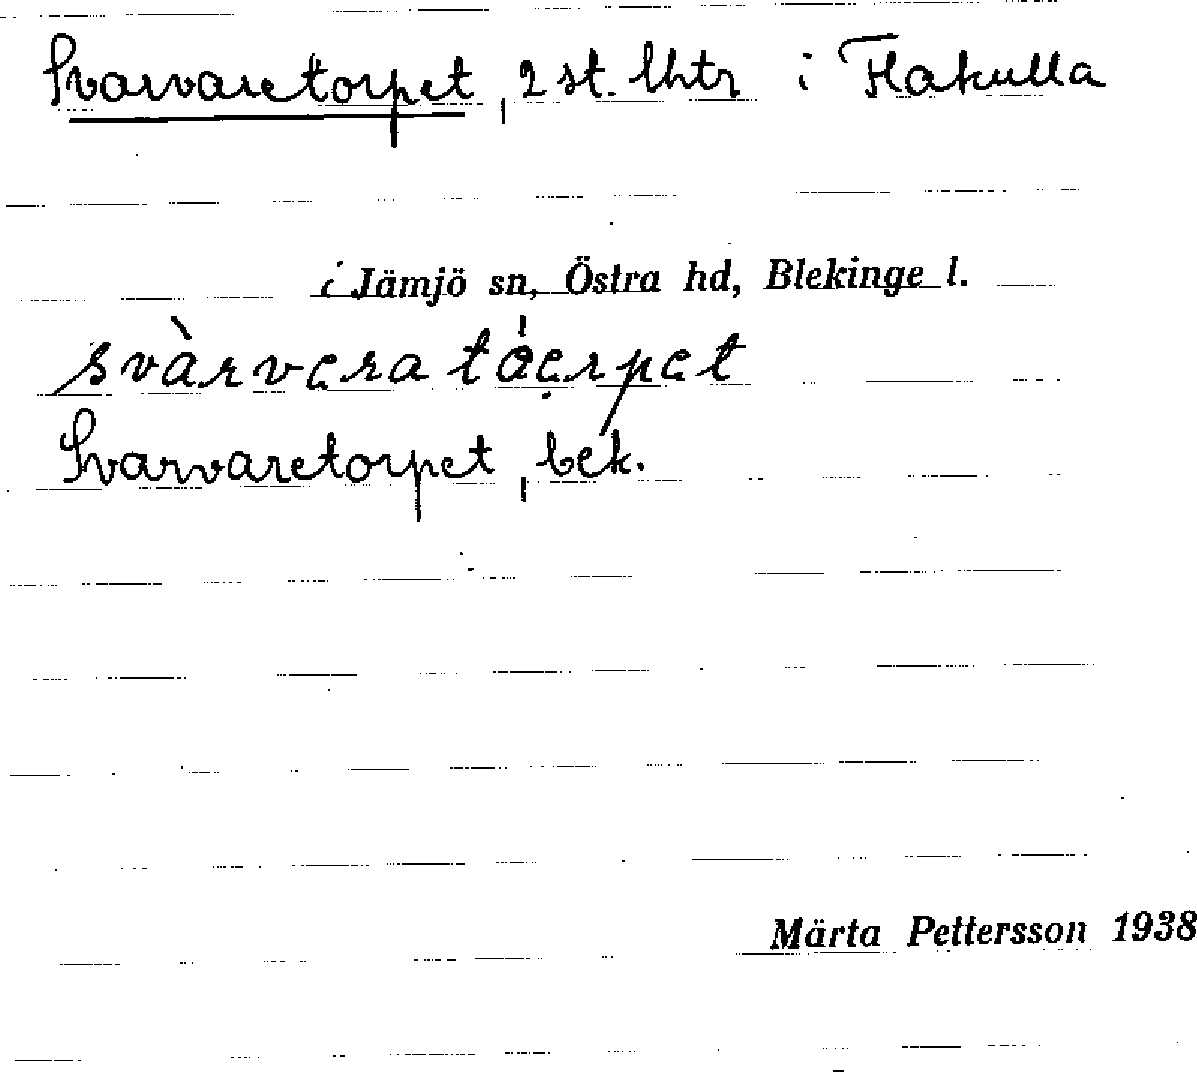 Svarvaretorpet, 2 st. lhtr i Flakulla
i Jämjö sn, Östra hd, Blekinge l.
svàrvera tóerpet
Svarvaretorpet, bek.
Märta Pettersson 1938